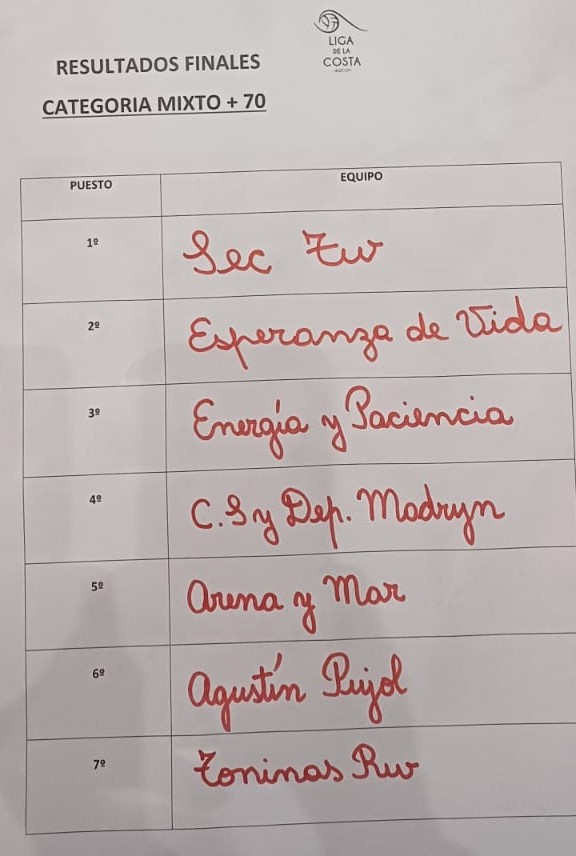 LIGA
DE LA
COSTA
RESULTADOS FINALES
CATEGORIA MIXTO + 70
PUESTO EQUIPO
1º Sec Tw
2º Esperanza de Vida
3º Energía y Paciencia
4º C.S y Dep. Madryn
5º Arena y Mar
6º Agustín Pujol
7º Toninas Rw